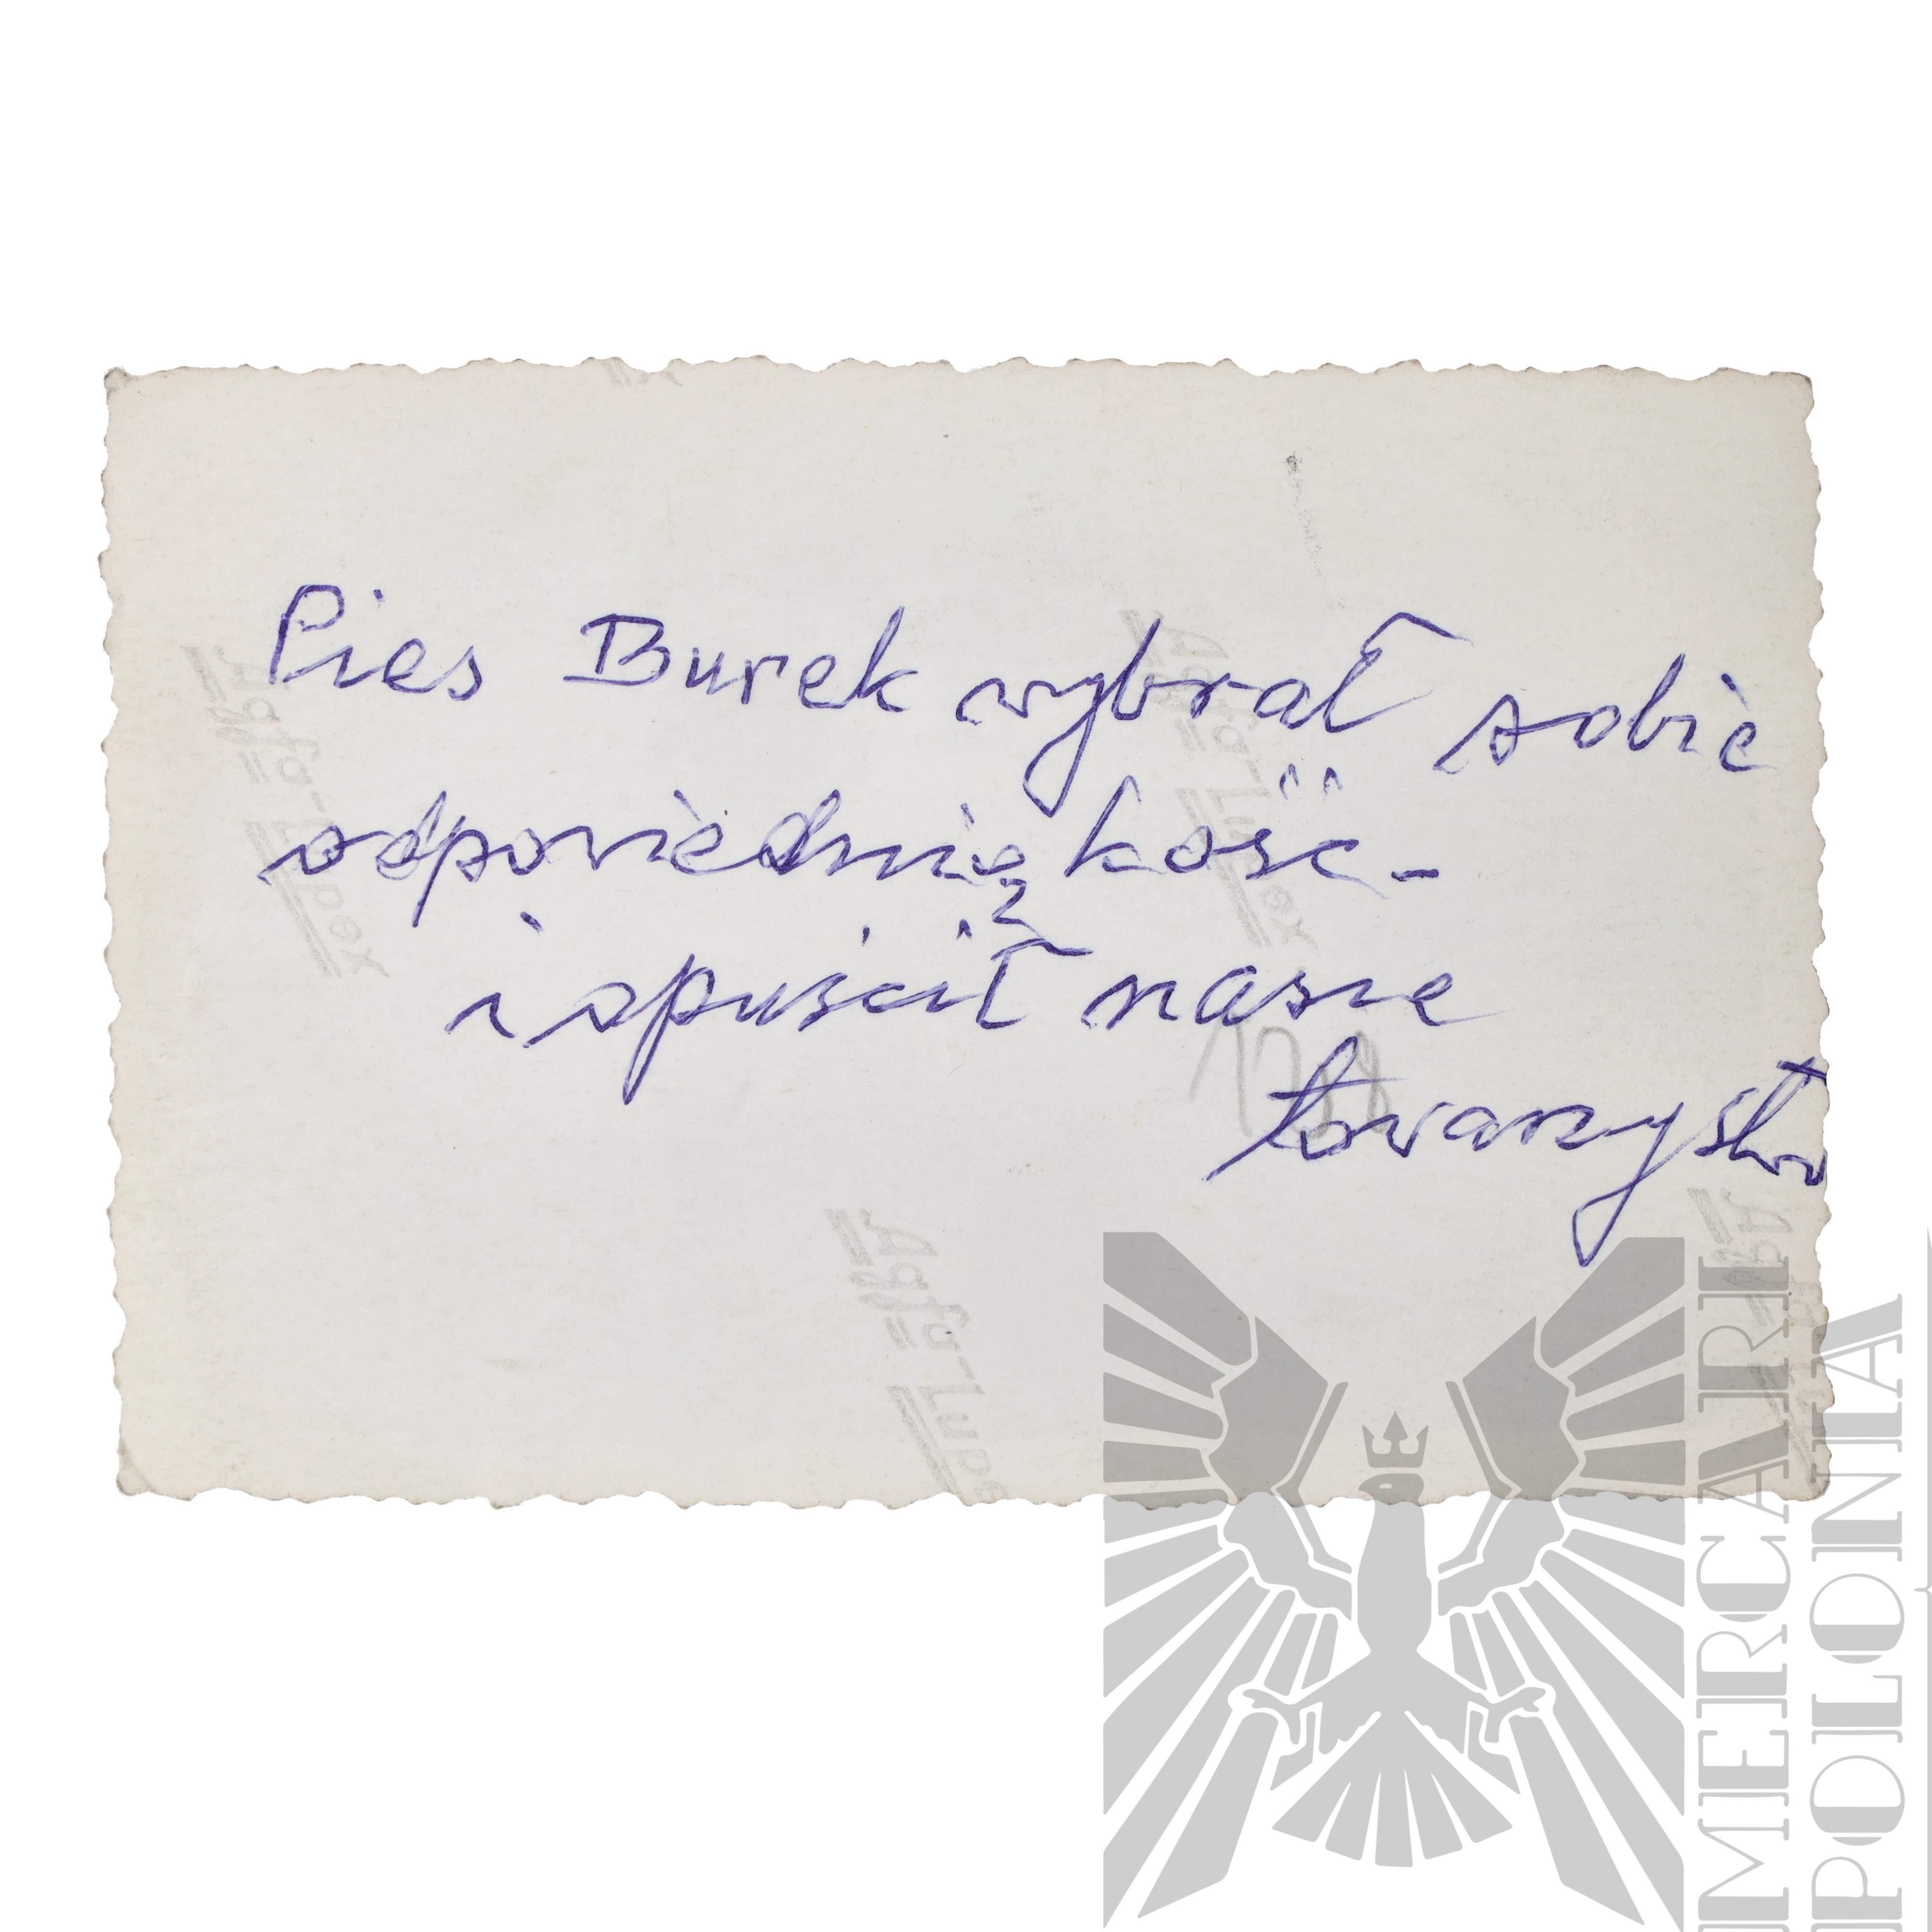 Pies Burek wybrał sobie
odpowiednią kość -
i opuścił nasze
towarzystw
Agfa-Lupex
Agfa-Lupex
Agfa-Lupe
Ag
MERCARI
POLONIA